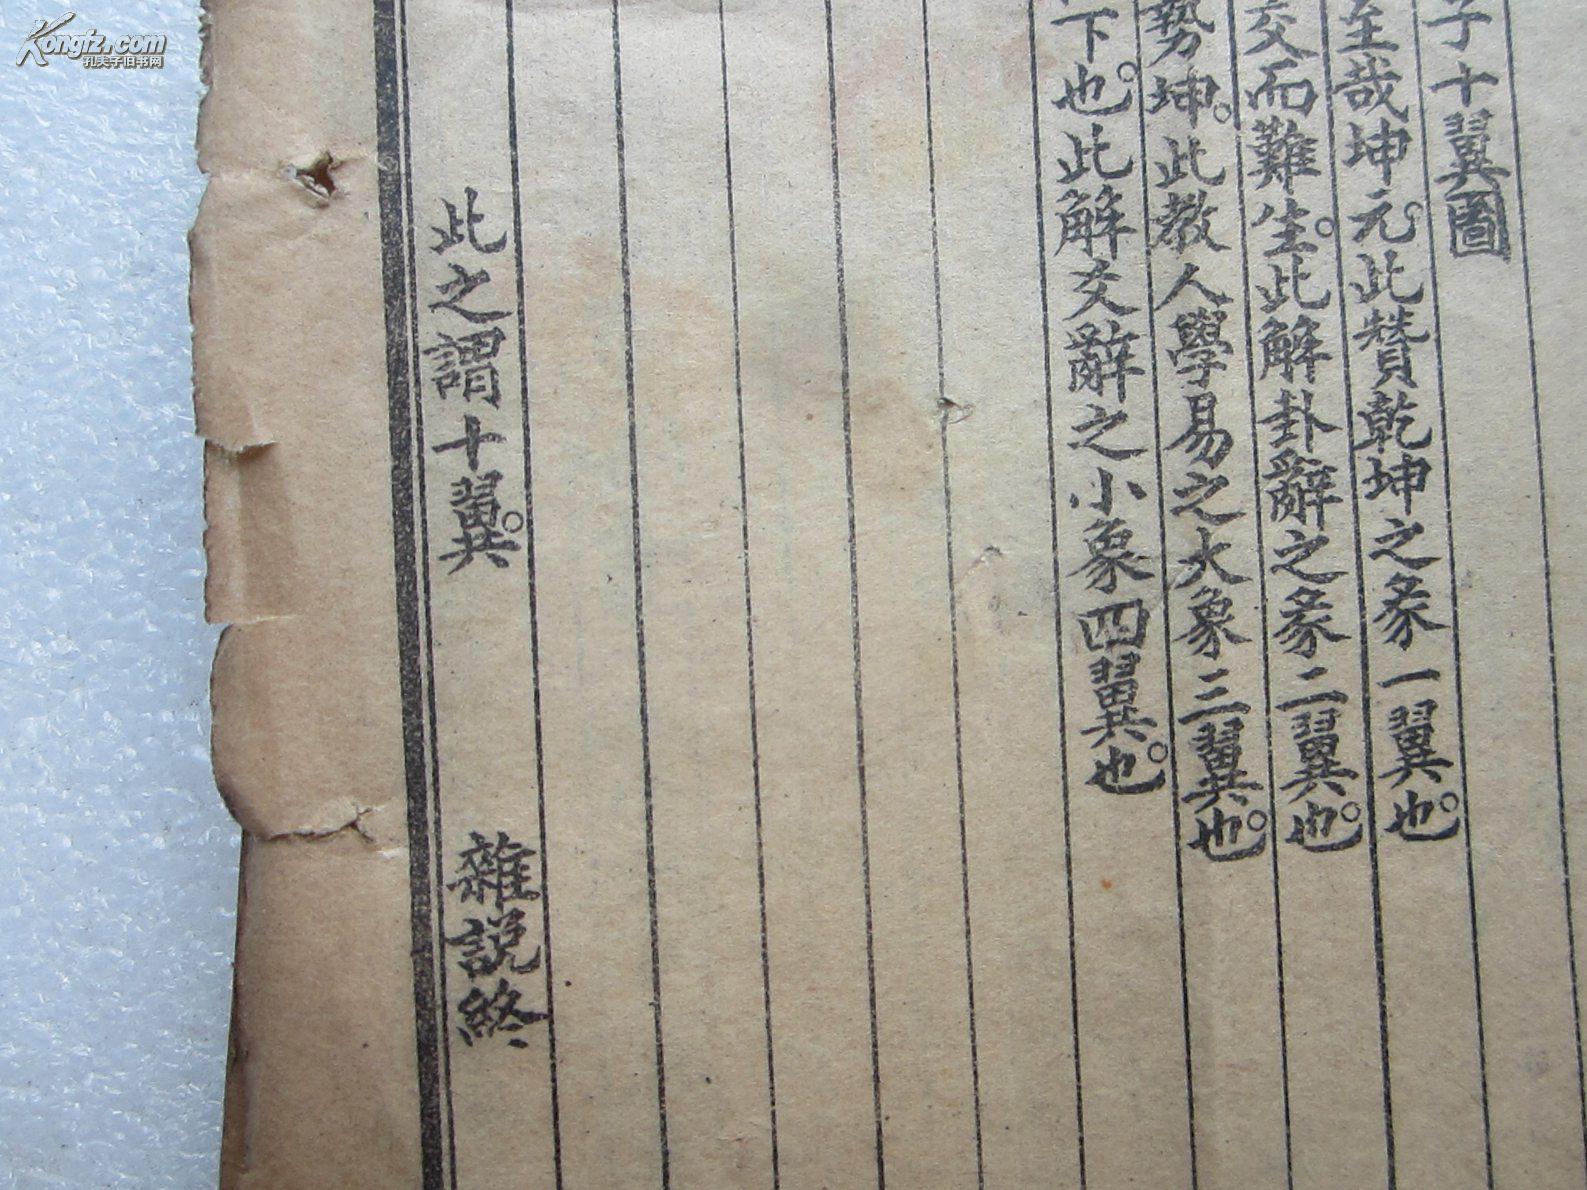 子十翼圖
至哉坤元。此贊乾坤之彖一翼也。
交而難生。此解卦辭之彖二翼也。
勢坤。此教人學易之大象三翼也。
下也。此解爻辭之小象四翼也。
此之謂十翼。 雜説終
Kongfz.com
孔夫子旧书网